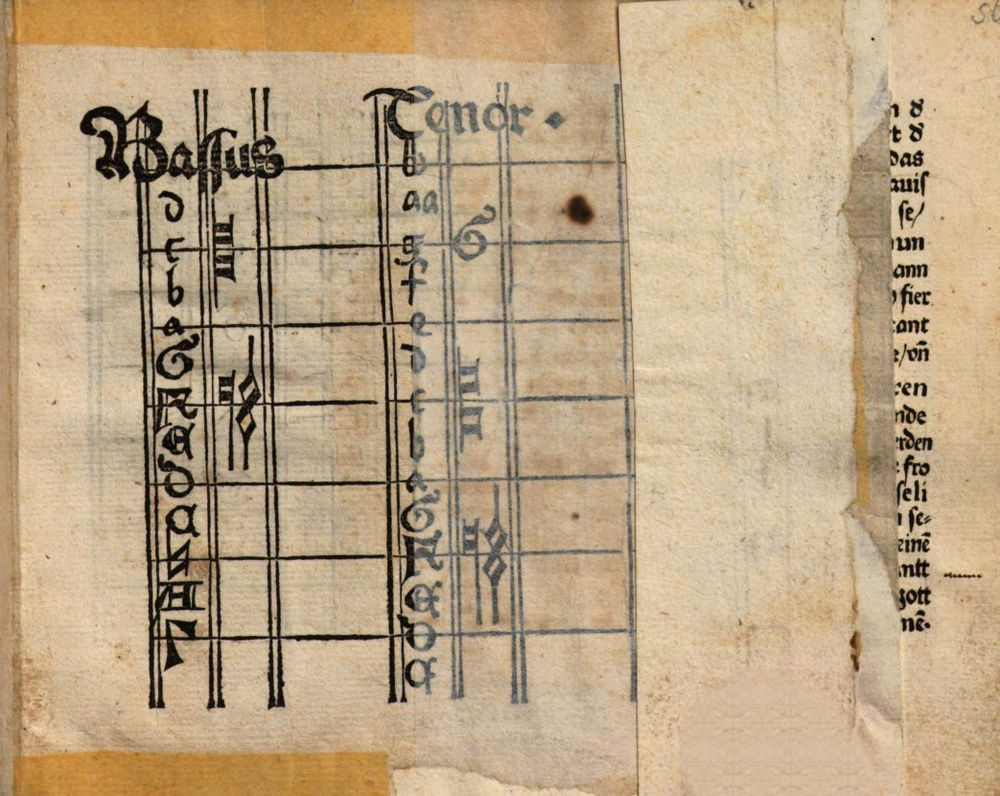 Bassus
d
c
b
a
G
F
E
D
C
Γ
Tenor.
b
aa
g
f
e
d
c
b
a
G
F
E
D
C
G
n d
t d
das
auis
se/
nun
ann
fier
cant
e/vñ
cen
nde
erden
fro
seli
se-
einē
ntt
gott
nē.